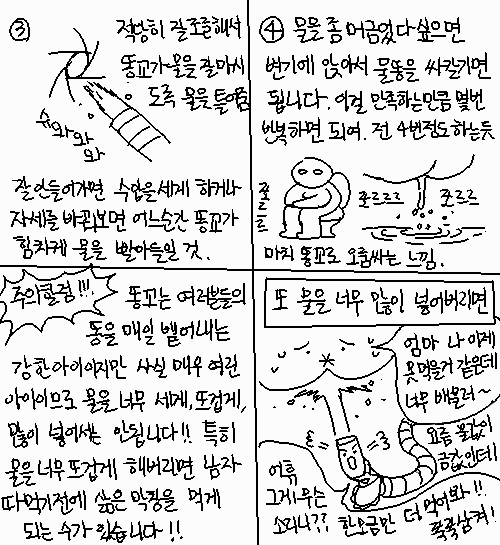 ③ 적당히 잘 조준해서
똥꼬가 물을 잘 마시
도록 물을 틀어줌
슈와와와
잘 안들어가면 수압을 세게 하거나
자세를 바꿔보면 어느순간 똥꼬가
힘차게 물을 빨아들일 것.
④ 물을 좀 머금었다 싶으면
변기에 앉아서 물똥을 싸갈기면
됩니다. 이걸 만족하는만큼 몇번
반복하면 되여. 전 4번정도 하는듯
쪼르르
쪼르르르
쪼르르
마치 똥꼬로 오줌싸는 느낌.
주의할점!!!
똥꼬는 여러분들의
똥을 매일 뱉어내는
강한아이이지만 사실 매우 여린
아이이므로 물을 너무 세게, 뜨겁게,
많이 넣어서는 안됩니다!! 특히
물을 너무 뜨겁게 해버리면 남자
따먹기전에 삶은 막창을 먹게
되는 수가 있습니다!!
또 물을 너무 많이 넣어버리면
엄마 나 이제
못먹을거 같은데
너무 배불러~
어휴
그게 무슨
소리니??
요즘 물값이
금값인데!
한모금만 더 먹어봐!!
쭉쭉 삼켜!